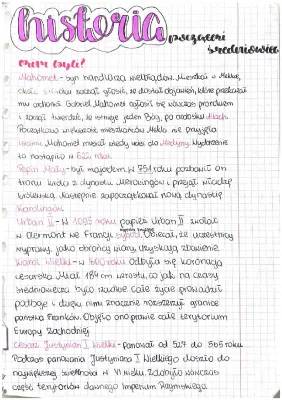 historia
początki
średniowiecza
Kim byli?
Mahomet - syn handlarza wielbłądów. Mieszkał w Mekce,
zaczął głosić, że doznał objawień, które przekazał
mu archanioł Gabriel. Mahomet ogłosił się wówczas prorokiem
i zaczął twierdzić, że istnieje jeden Bóg, po arabsku Allach.
Początkowo większość mieszkańców Mekki nie przyjęła
islamu. Mahomet musiał wtedy uciec do Medyny. Wydarzenie
to nastąpiło w 622 roku.
Pepin Mały - był majordomem w 751 roku pozbawił on
tronu króla z dynastii Merowingów i przejął władzę
królewską. Następnie zapoczątkował nową dynastię
Karolingów.
Urban II - W 1095 roku papież Urban II zwołał
w Clermont we Francji synod. Obiecał, że uczestnicy
wyprawy, jako obrońcy wiary, uzyskają zbawienie.
Karol Wielki - w 800 roku odbyła się koronacja
cesarska. Miał 184 cm wzrostu, co jak na czasy
średniowiecza było rzadkie. Całe życie prowadził
podboje i dzięki nim znacznie rozszerzył granice
państwa Franków. Objęło ono prawie całe terytorium
Europy Zachodniej
Cesarz Justynian I Wielki - panował od 527 do 565 roku
Podczas panowania Justyniana I Wielkiego doszło do
największej świetności w VI wieku. Zdobyto wówczas
część terytoriów dawnego Imperium Rzymskiego.